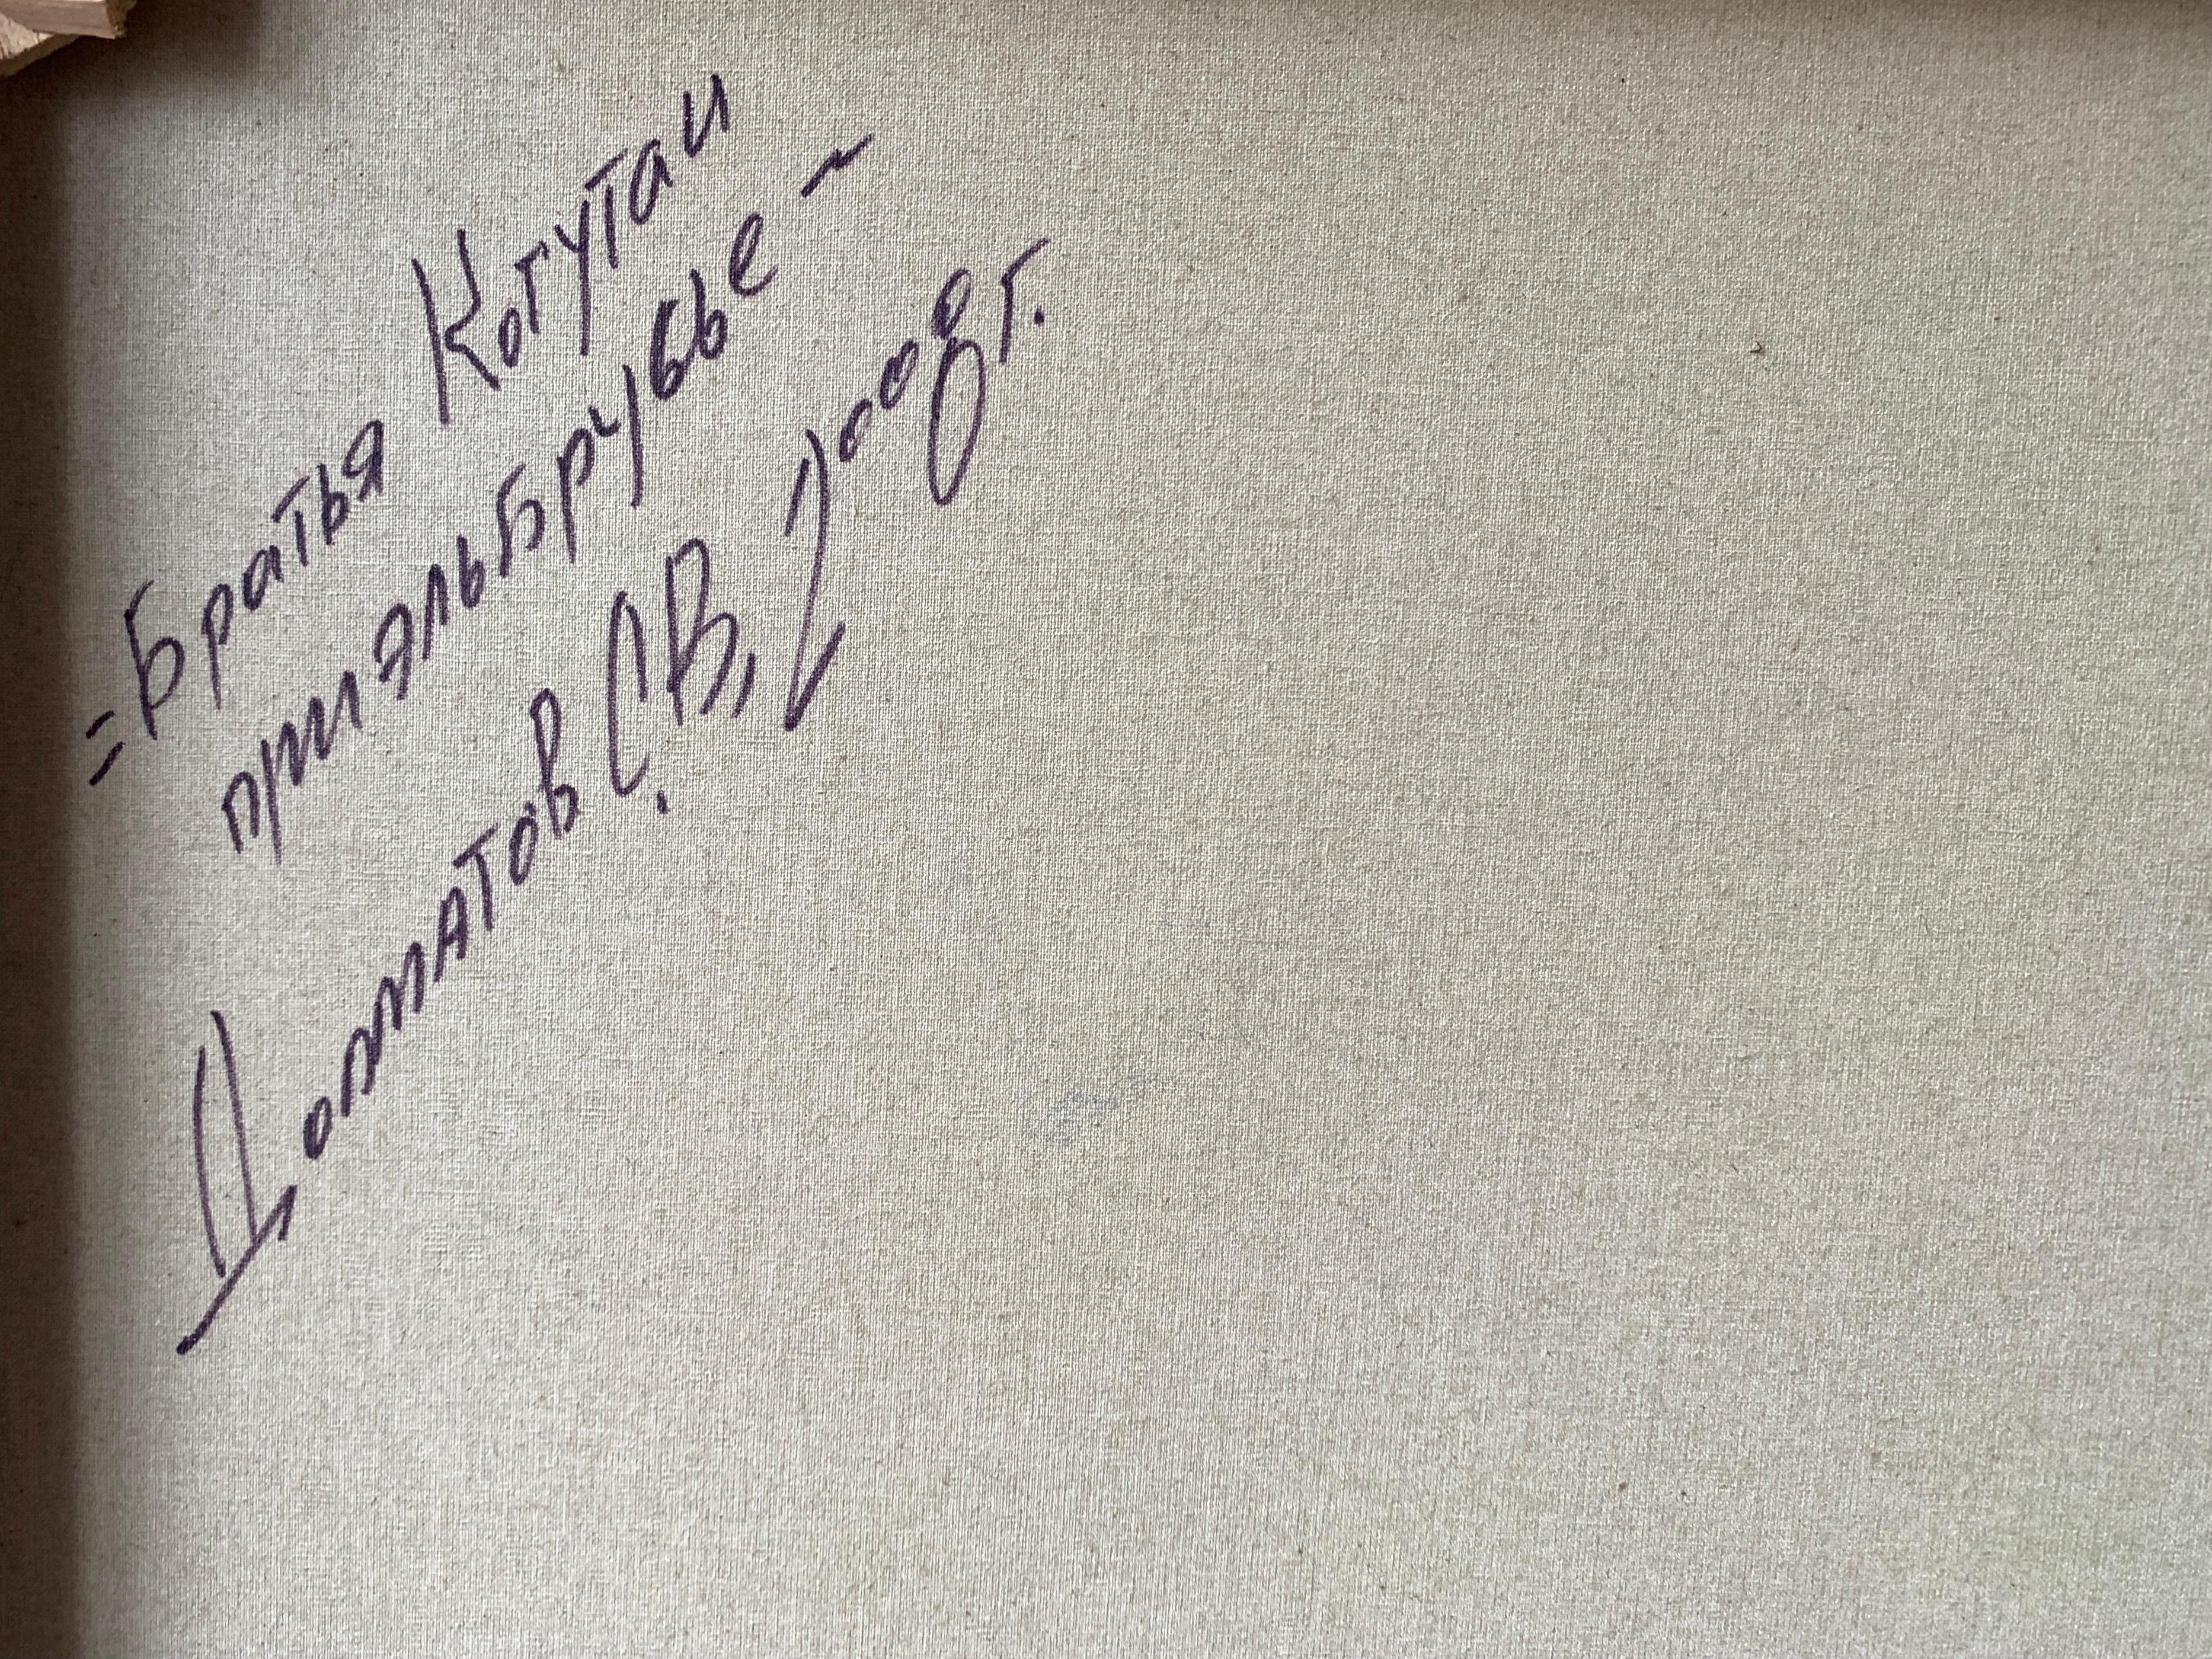 =Братья Когутаи
приэльбрусье ~
Долматов С.В, 2008г.